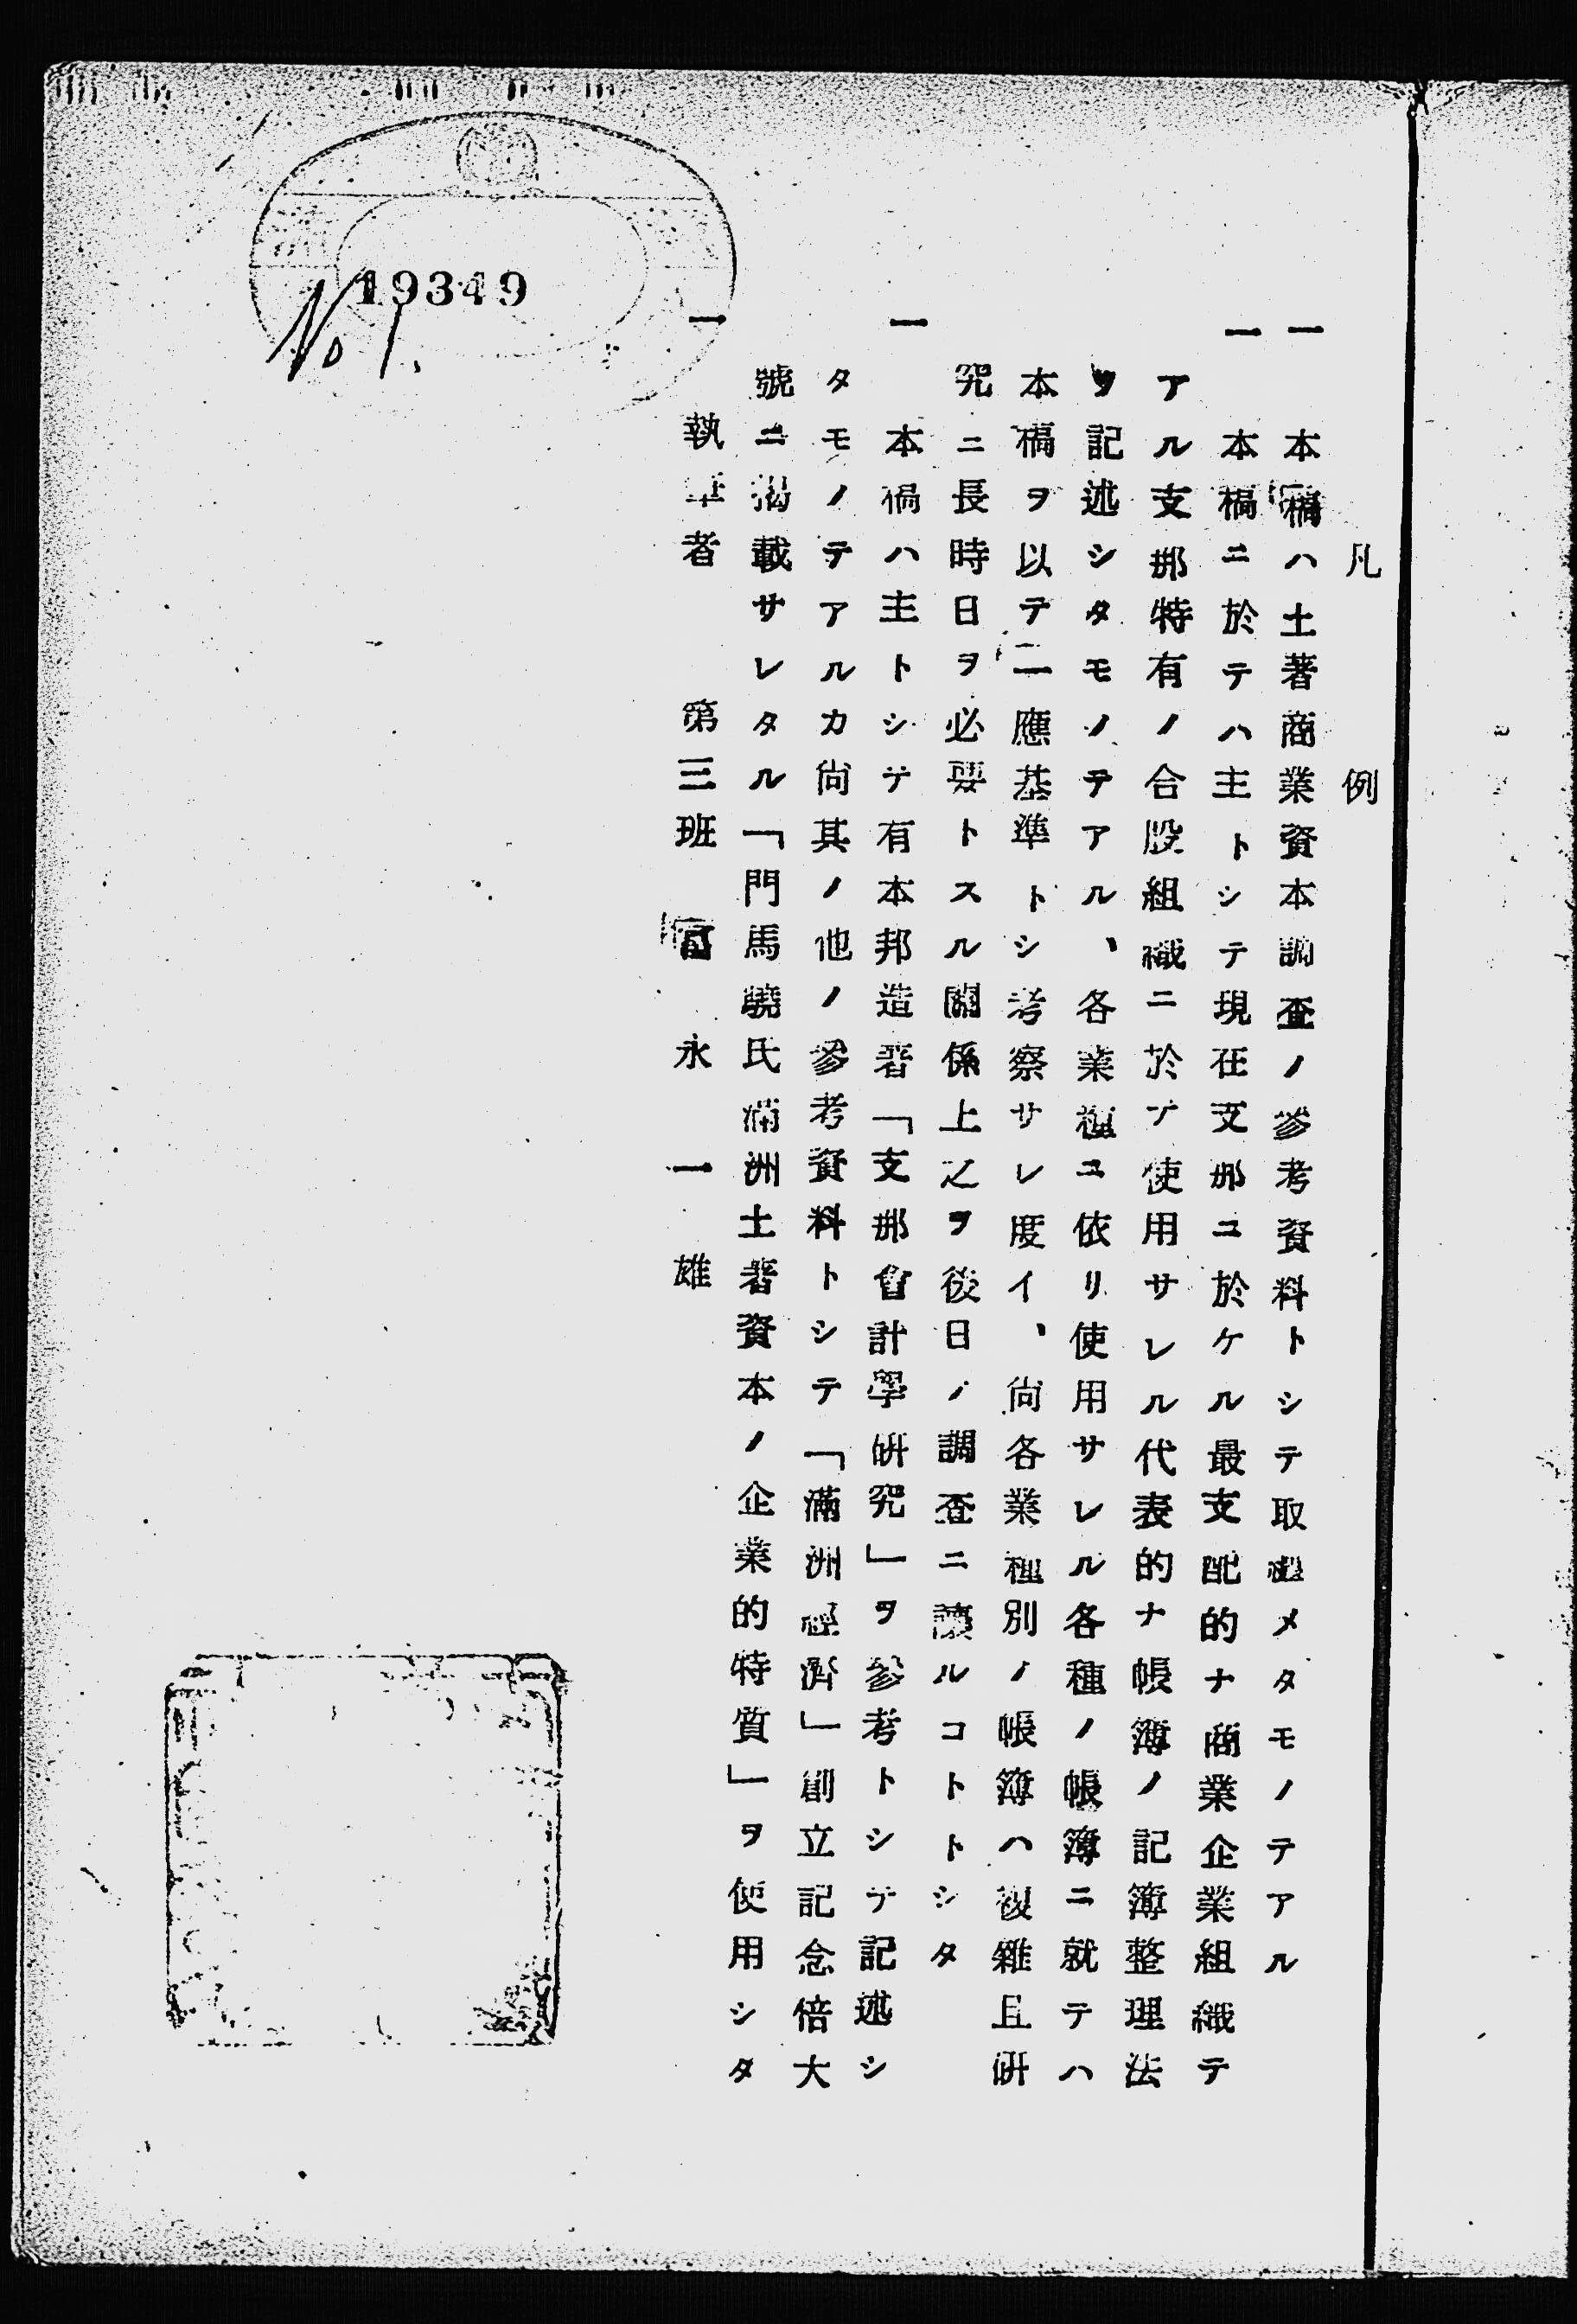 凡例
一 本稿ハ土著商業資本調査ノ參考資料トシテ取纒メタモノテアル
一 本稿ニ於テハ主トシテ現在支那ニ於ケル最支配的ナ商業企業組織テ
アル支那特有ノ合股組織ニ於テ使用サレル代表的ナ帳簿ノ記簿整理法
ヲ記述シタモノテアル、各業種ニ依リ使用サレル各種ノ帳簿ニ就テハ
本稿ヲ以テ一應基準トシ考察サレ度イ、尚各業種別ノ帳簿ハ複雜且研
究ニ長時日ヲ必要トスル關係上之ヲ後日ノ調査ニ讓ルコトトシタ
一 本稿ハ主トシテ有本邦造著「支那會計學研究」ヲ參考トシテ記述シ
タモノテアルカ尚其ノ他ノ參考資料トシテ「滿洲經濟」創立記念倍大
號ニ揭載サレタル「門馬驍氏滿洲土著資本ノ企業的特質」ヲ使用シタ
一 執筆者 第三班 富永一雄
19349
No 1.